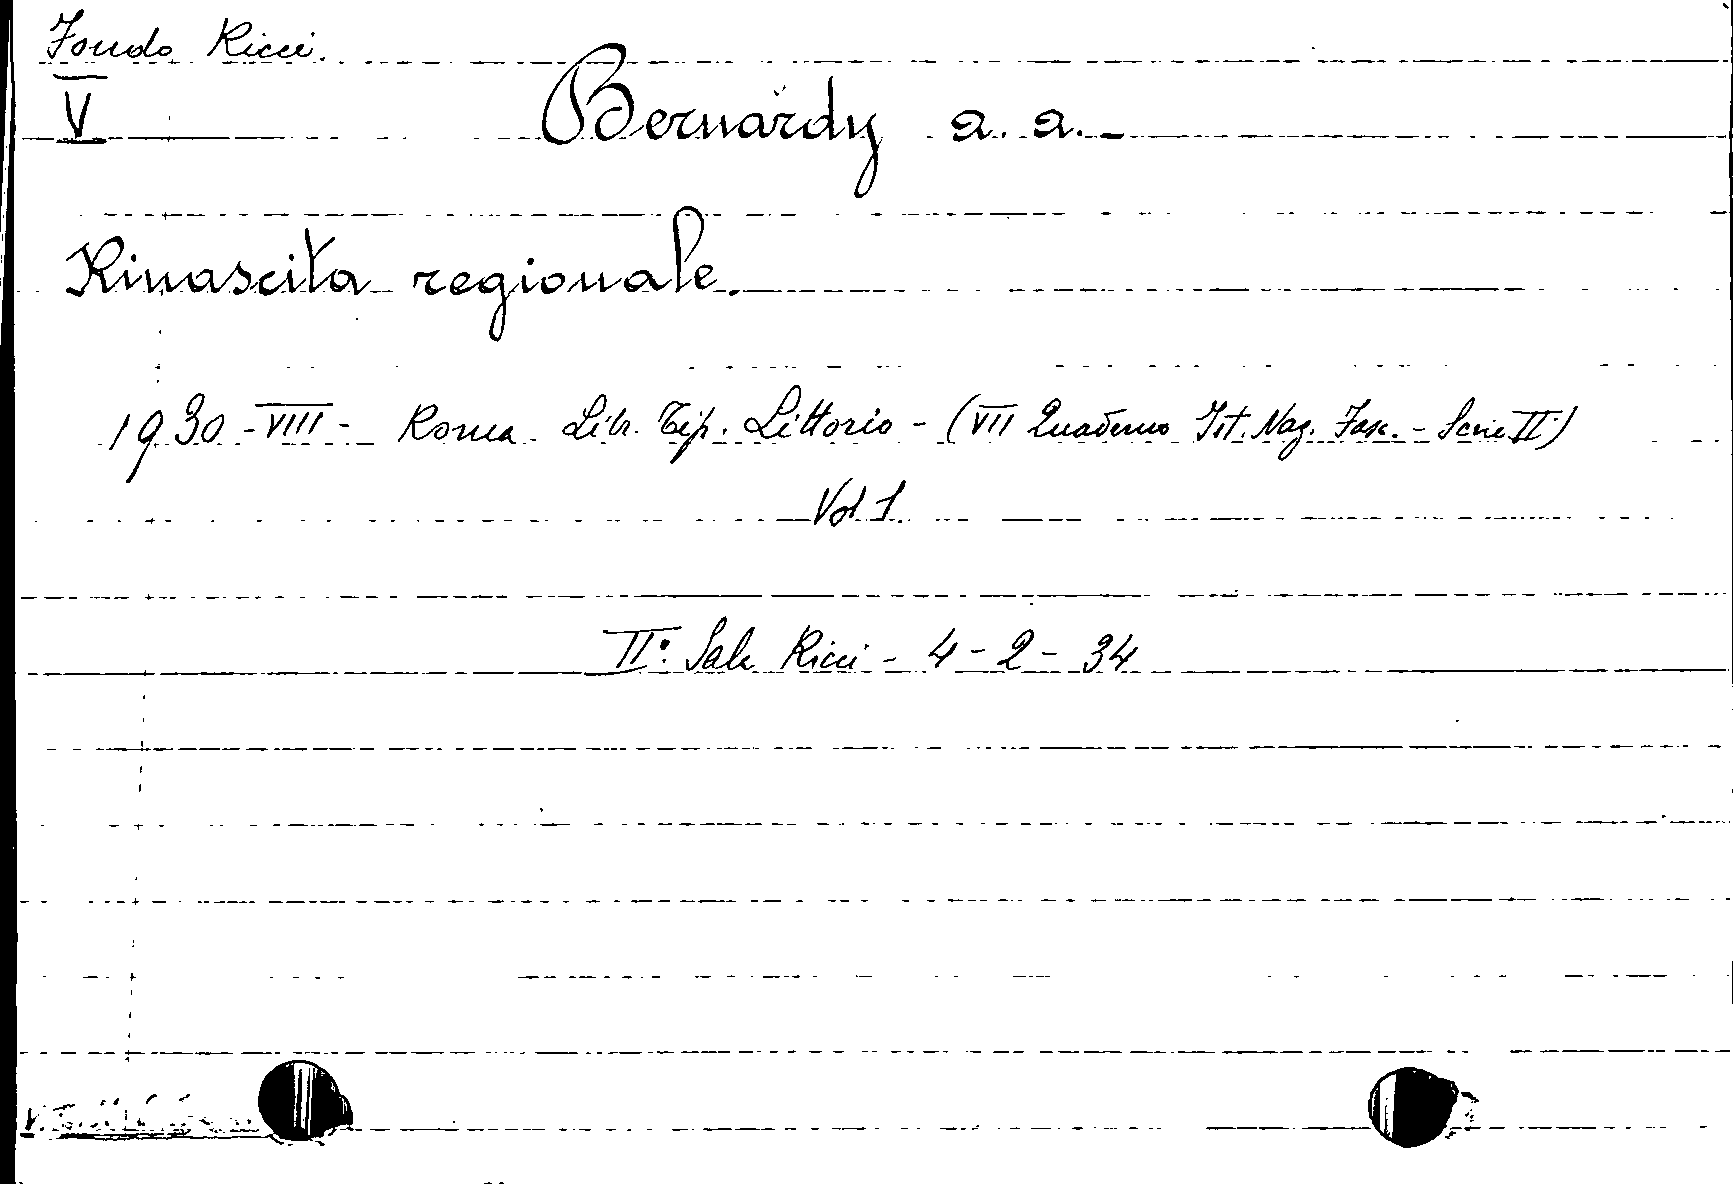 Fondo Ricci.
V
Bernardy a. a. -
Rinascita regionale.
1930 - VIII - Roma Libr. Tip. Littorio - (VII Quaderno Ist. Naz. Fasc. - Serie II)
Vol 1.
II° Sala Ricci - 4 - 2 - 34